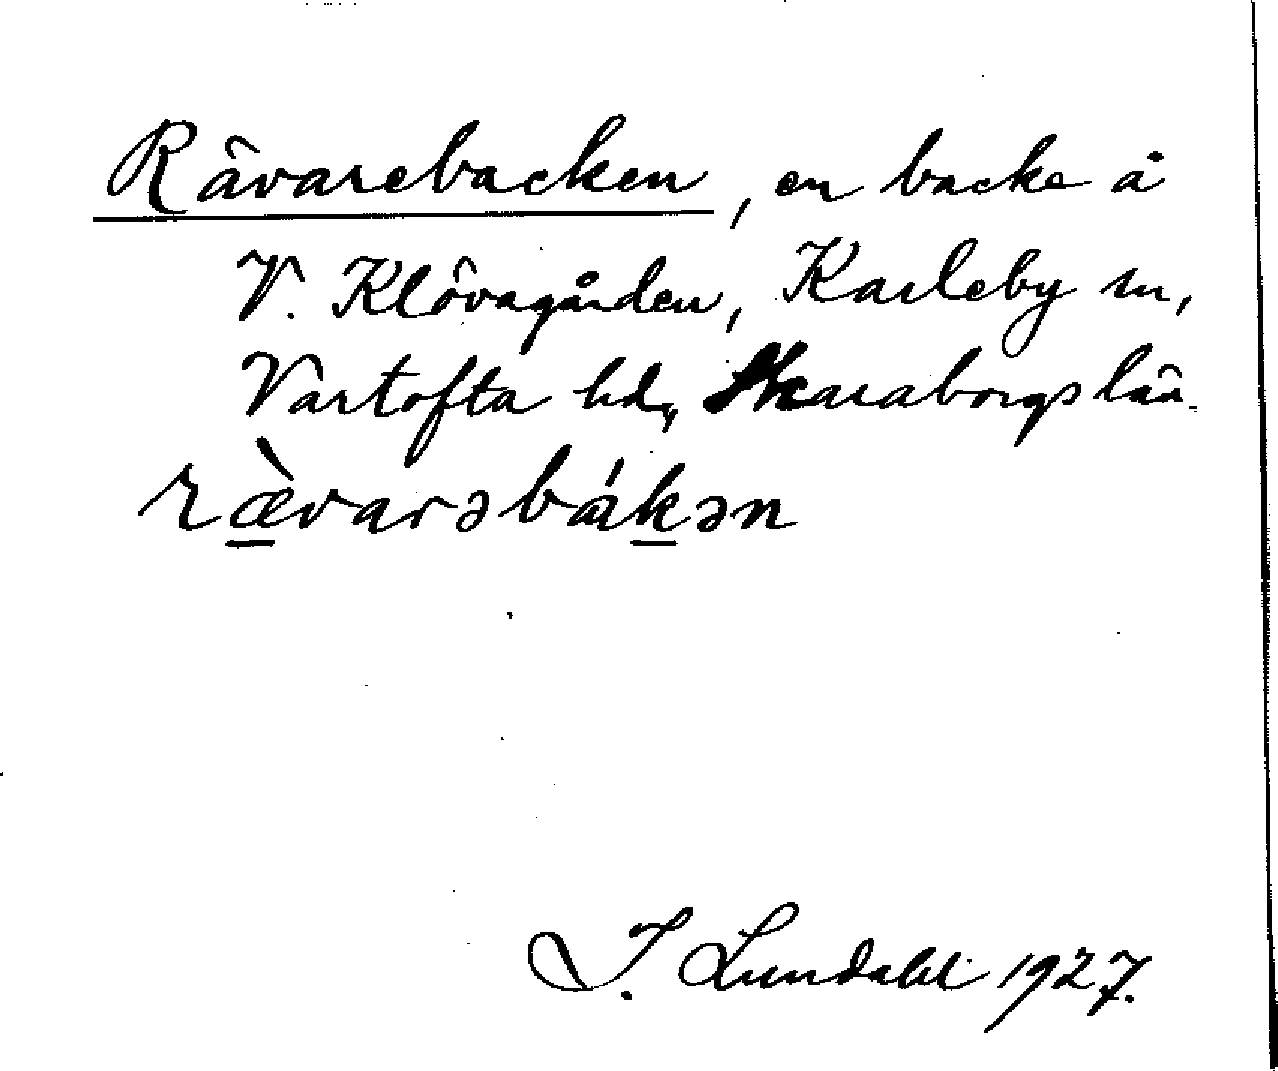 Rävarebacken, en backe å
V. Klövagården, Karleby sn,
Vartofta hd, Skaraborgs län.
rævarəbákən
I. Lundahl 1927.